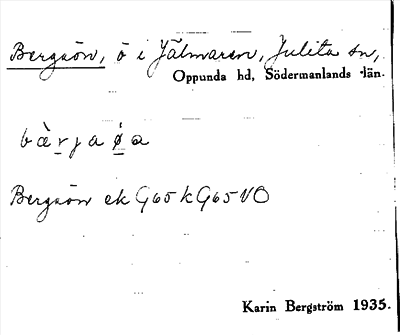 Bergaön, ö i Jälmaren, Julita sn,
Oppunda hd, Södermanlands län.
bàrjaǿa
Bergaön ek G65kG65VO
Karin Bergström 1935.